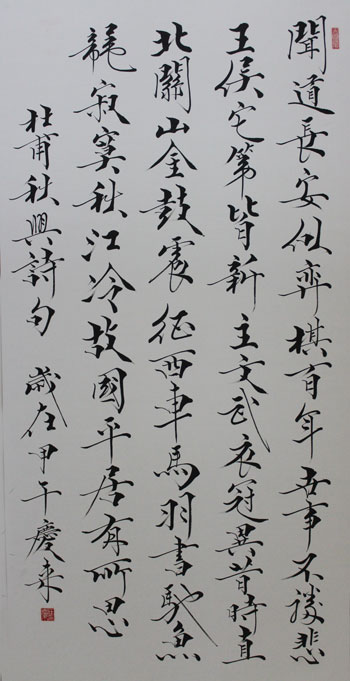 聞道長安似弈棋百年世事不勝悲
王侯宅第皆新主文武衣冠異昔時直
北關山金鼓震征西車馬羽書馳魚
龍寂寞秋江冷故國平居有所思
杜甫秋興詩句 歲在甲午慶來